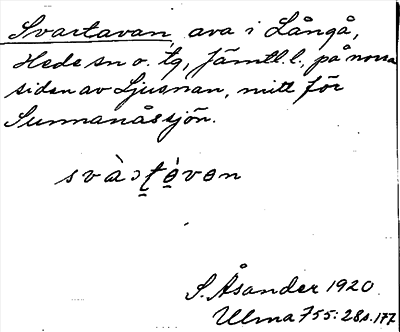 Svartavan, ava i Långå,
Hede sn o. tg, Jämtl. l., på norra
siden av Ljusnan, mitt för
Sunnanåssjön.
S. Åsander 1920
Ulma 755: 28 s. 177